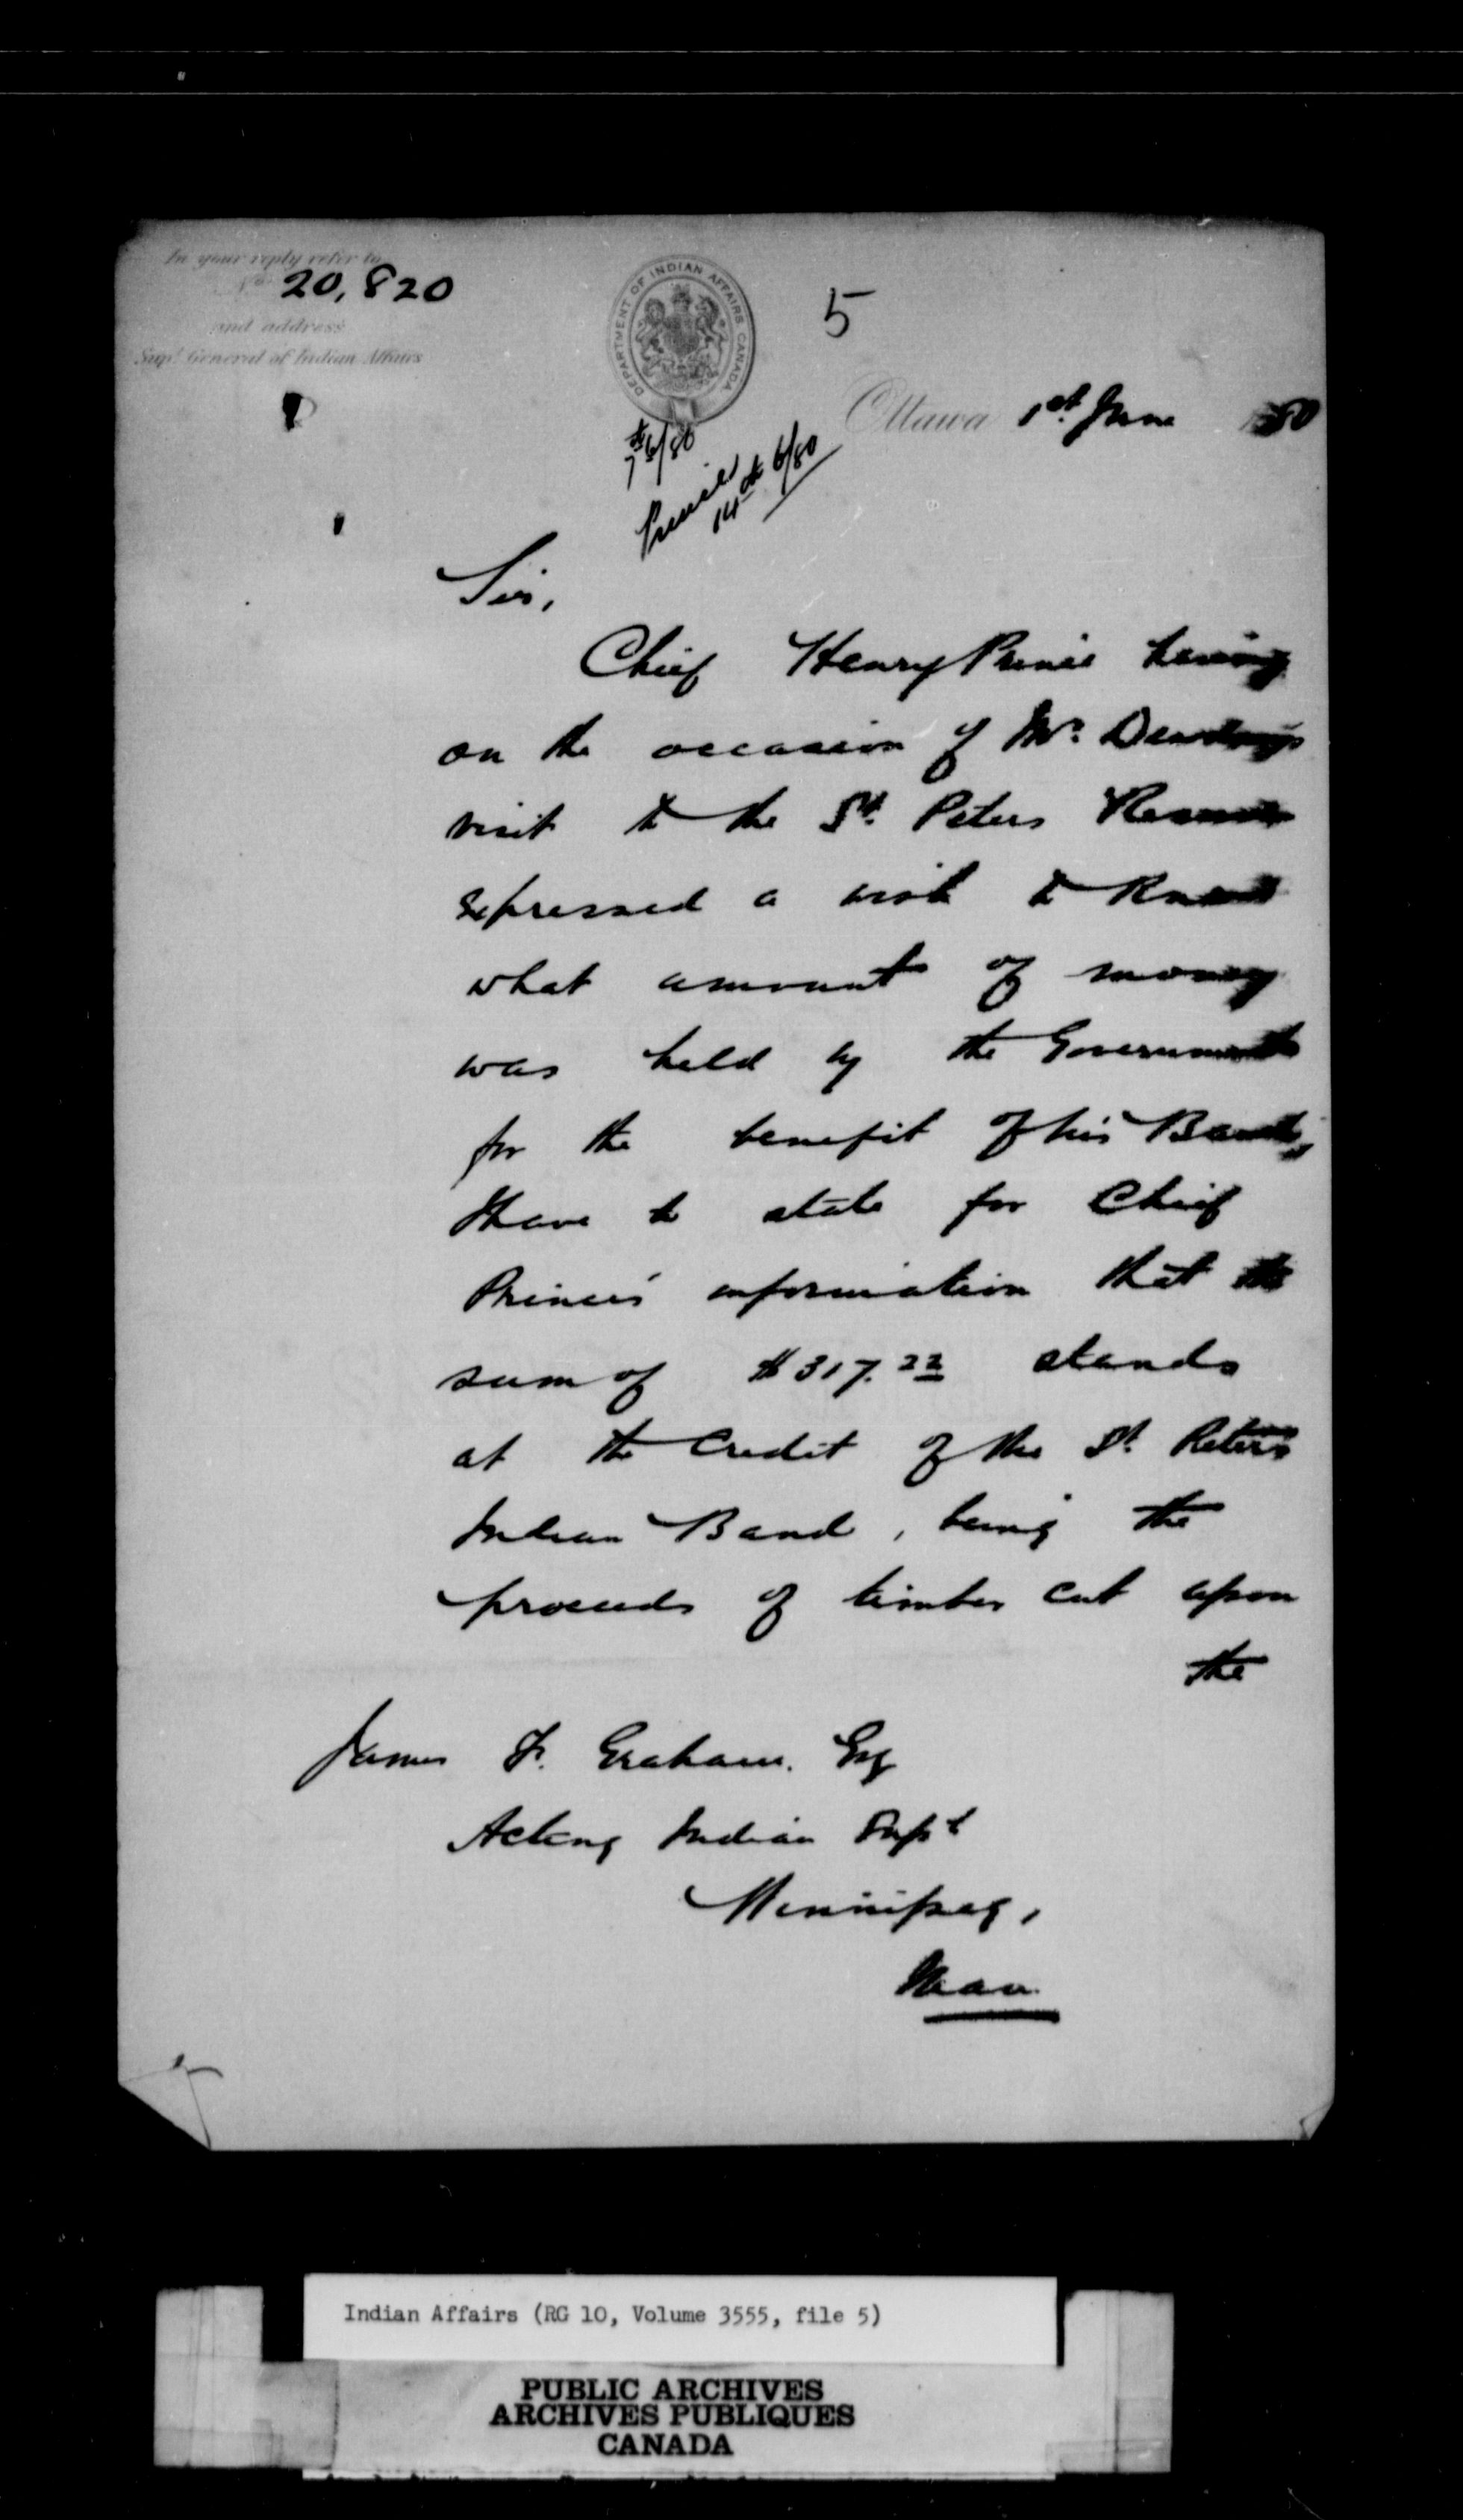 In your reply refer to
No. 20,820
and address
Supt. General of Indian Affairs
DEPARTMENT OF INDIAN AFFAIRS CANADA
5
Ottawa 1st June 1880
7th 6/80
14th 6/80
Sir,
Chief Henry Prince having
on the occasion of Mr. Dewdney's
visit to the St. Peters Reserve
expressed a wish to know
what amount of money
was held by the Government
for the benefit of his Band,
I have to state for Chief
Prince's information that the
sum of $317.22 stands
at the Credit of the St. Peter's
Indian Band, being the
proceeds of timber cut upon
the
James F. Graham. Esq
Acting Indian Supt
Winnipeg,
Man.
Indian Affairs (RG 10, Volume 3555, file 5)
PUBLIC ARCHIVES
ARCHIVES PUBLIQUES
CANADA